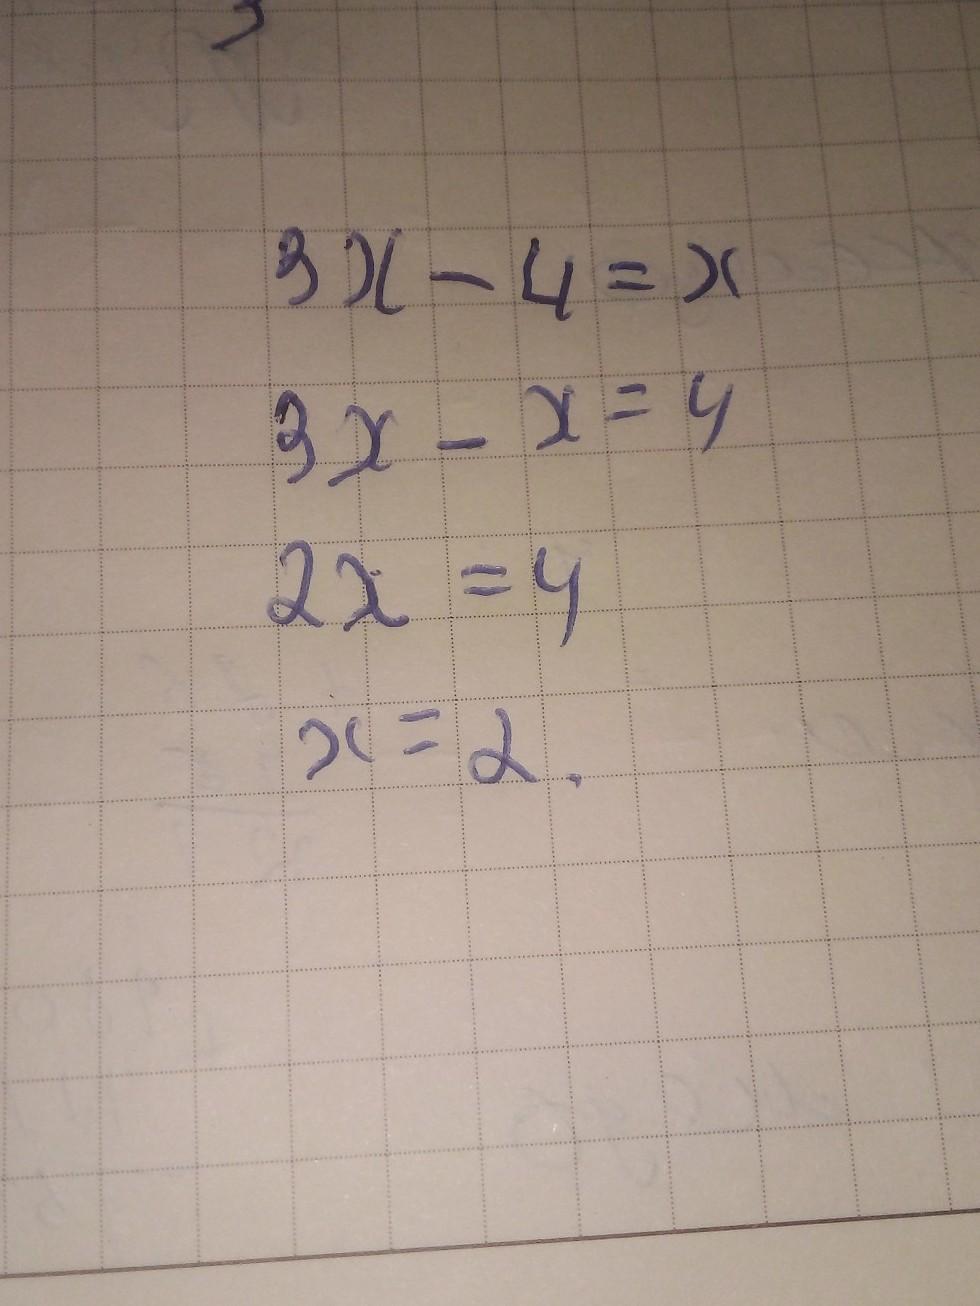 3x - 4 = x
3x - x = 4
2x = 4
x = 2.